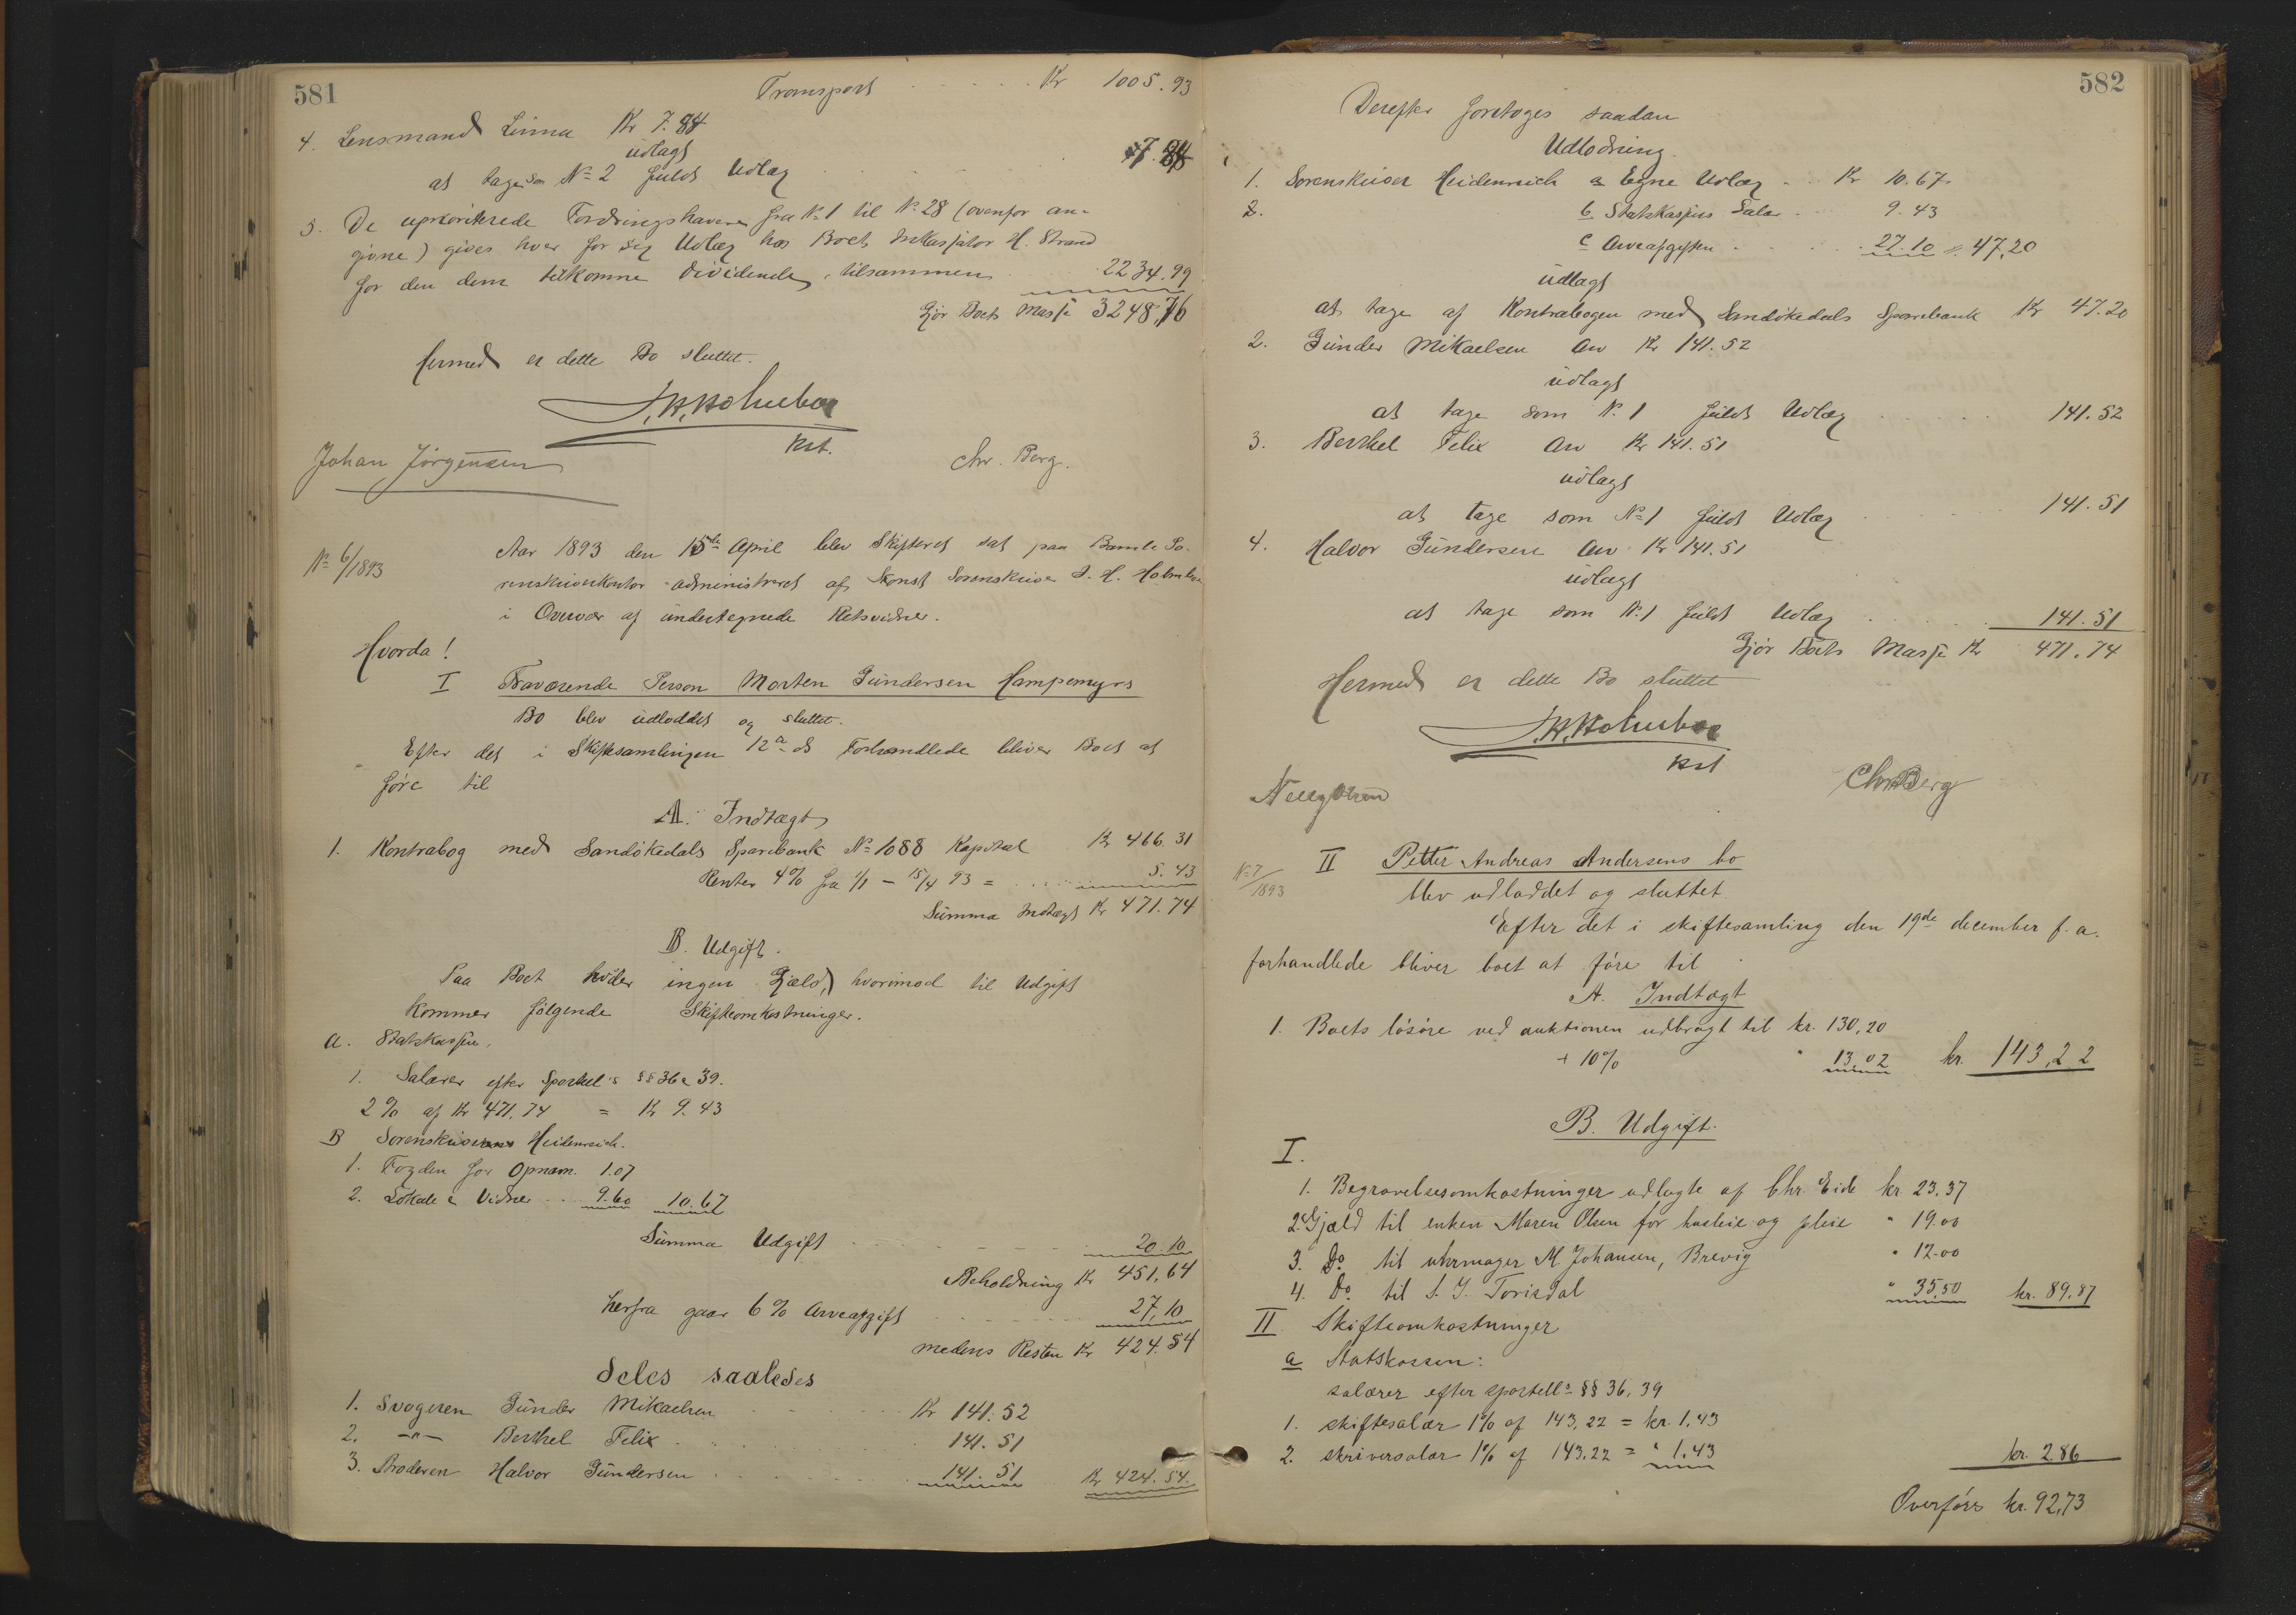 581
Transport . . . . . Kr 1005.93
4. Lensmand Linna Kr 7.84
udlagt
at tage som No 2 fuldt Udlæg . . . 7.84
5. De uprioriterede Fordringshavere fra No 1 til No 28 (ovenfor an-
givne) gives hver for sig Udlæg hos Boets Inkassator H. Strand
for den dem tilkomne Dividende, tilsammen 2234.99
Gjør Boets Masse 3248,76
Hermed er dette Bo sluttet.
J.H.Holmboe
Kst.
Johan Jörgensen
Chr. Berg.
No 6/1893
Aar 1893 den 15de April blev Skifteret sat paa Bamle So-
renskriverkontor administreret af Konst Sorenskriver J. H. Holmboe
i Overvær af undertegnede Retsvidner.
Hvorda!
I Fraværende Person Morten Gundersen Hampemyrs
Bo blev udloddet og sluttet.
Efter det i Skiftesamlingen 12te ds Forhandlede bliver Boet at
føre til
A. Indtægt
1. Kontrabog med Sandökedals Sparebank No 1088 Kapital Kr 466.31
Renter 4% fra 1/1 - 15/4 93 = . . . . 5.43
Summa Indtægt Kr 471.74
B. Udgift.
Paa Boet hviler ingen Gjæld, hvorimod til Udgift
kommer følgende Skifteomkostninger.
a. Statskassen.
1. Salærer efter Sportel's §§ 36 & 39.
2% af Kr 471.74 = Kr 9.43
B Sorenskriver Heidenreich.
1. Fogden for Opnavn. 1.07
2. Lokale & Vidner . . . 9.60 10.67
Summa Udgift . . . 20.10
Beholdning Kr 451,64
herfra gaar 6% Arveafgift . . . 27,10
medens Resten Kr 424.54
deles saaledes
1. Svogeren Gunder Mikaelsen . . . Kr 141.52
2. -"- Berthel Felix . . . 141.51
3. Broderen Halvor Gundersen . . . 141.51 Kr 424.54.
582
Derefter foretoges saadan
Udlodning.
1. Sorenskriver Heidenreich a Egne Udlæg . . Kr 10.67
2. b Statskassens Salær . . 9.43
c Arveafgiften . . . . 27.10 = 47,20
udlagt
at tage af Kontrabogen med Sandökedals Sparebank Kr 47.20
2. Gunder Mikaelsen Arv Kr 141.52
udlagt
at tage som No 1 fuldt Udlæg . . . 141.52
3. Berthel Felix Arv Kr 141.51
udlagt
at tage som No 1 fuldt Udlæg . . . 141.51
4. Halvor Gundersen Arv Kr 141.51
udlagt
at tage som No 1 fuldt Udlæg . . . 141.51
Gjør Boets Masse Kr 471.74
Hermed er dette Bo sluttet
J.H.Holmboe
Kst
Chr Berg
No 7/1893
II Petter Andreas Andersens bo
blev udloddet og sluttet
Efter det i skiftesamling den 19de december f. a.
forhandlede bliver boet at føre til
A. Indtægt
1. Boets lösöre ved auktionen udbragt til kr. 130,20
+ 10% " 13,02 kr. 143,22
B. Udgift.
I.
1. Begravelsesomkostninger udlagte af Chr. Eide kr. 23,37
2. Gjæld til enken Maren Olsen for husleie og pleie " 19.00
3. Do til uhrmager M Johansen, Brevig " 12.00
4. Do til S. J. Torisdal " 35,50 kr. 89.87
II Skifteomkostninger
a Statskassen:
salærer efter sportells §§ 36, 39
1. skiftesalær 1% af 143,22 = kr. 1,43
2. skriversalær 1% af 143.22 = " 1.43 kr. 2.86
Overföres kr. 92,73